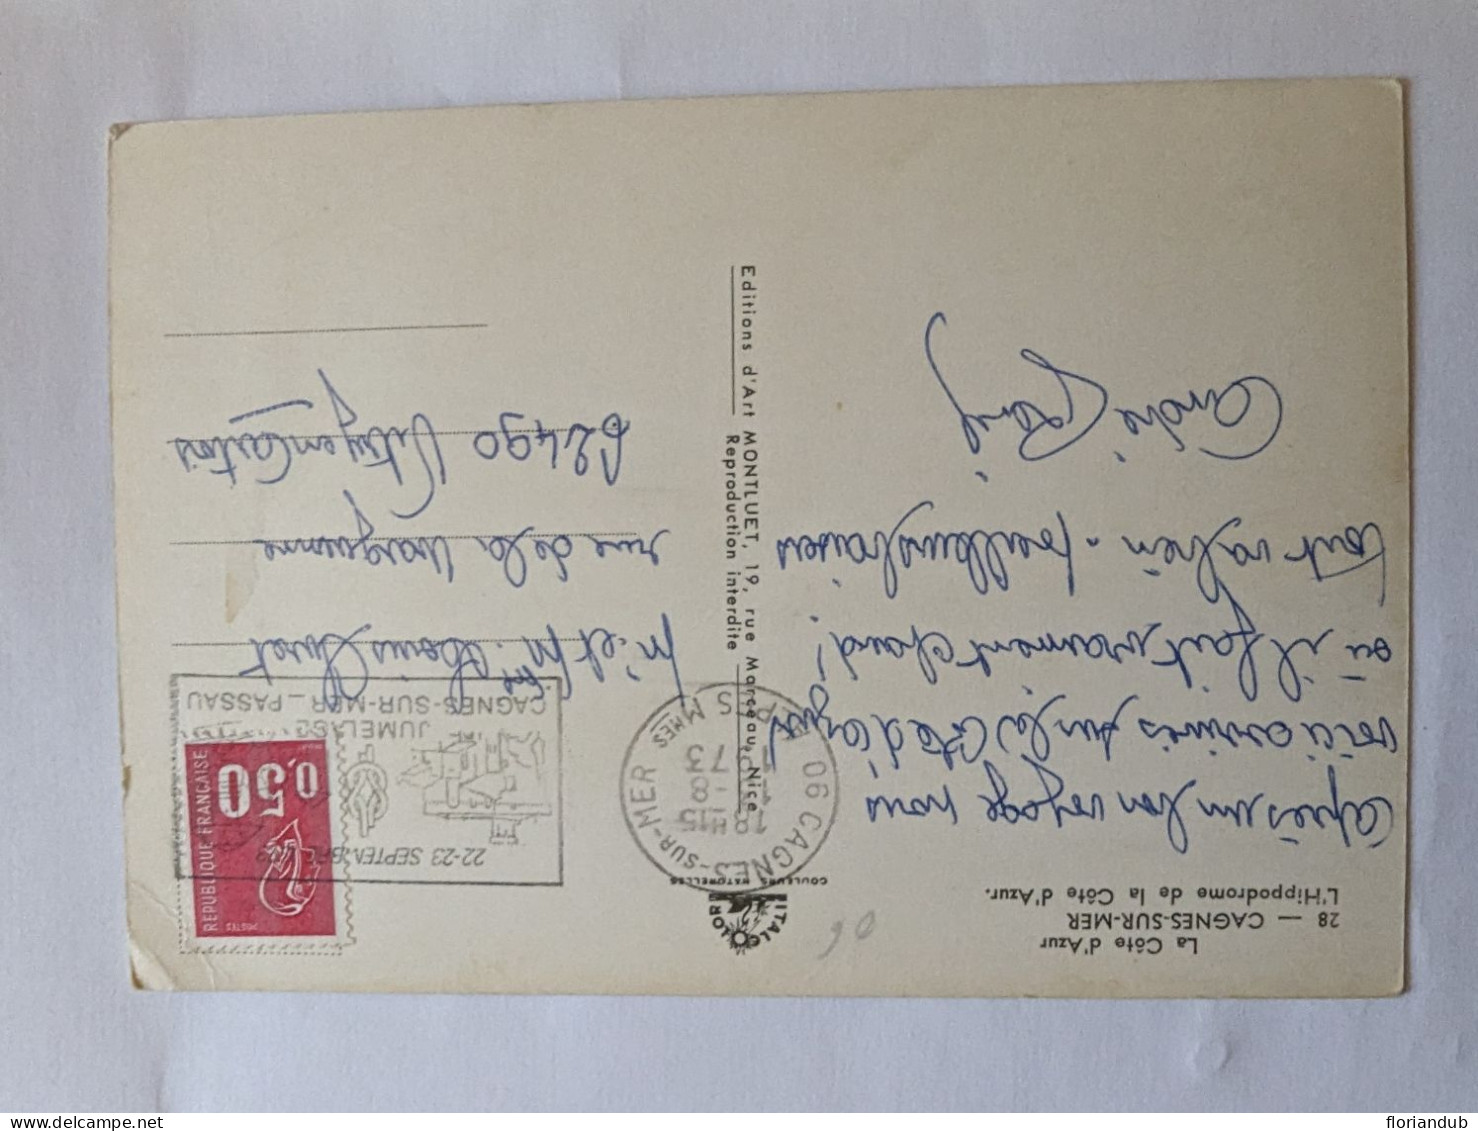 La Côte d'Azur
28 — CAGNES-SUR-MER
L'Hippodrome de la Côte d'Azur.
06
ITALCOLOR
COULEURS NATURELLES
Après un bon voyage nous
voici arrivés sur la Côte d'Azur
où il fait vraiment chaud!
tout va bien - meilleurs baisers
André
Editions d'Art MONTLUET, 19, rue Marceau, Nice
Reproduction interdite
06 CAGNES-SUR-MER
ALPES MMES
18H15
-8
73
22-23 SEPTEMBRE
JUMELAGE
CAGNES-SUR-MER — PASSAU
POSTES
REPUBLIQUE FRANÇAISE
0,50
Mr et Mme Louis
rue de la
62490 Vitry en Artois
floriandub